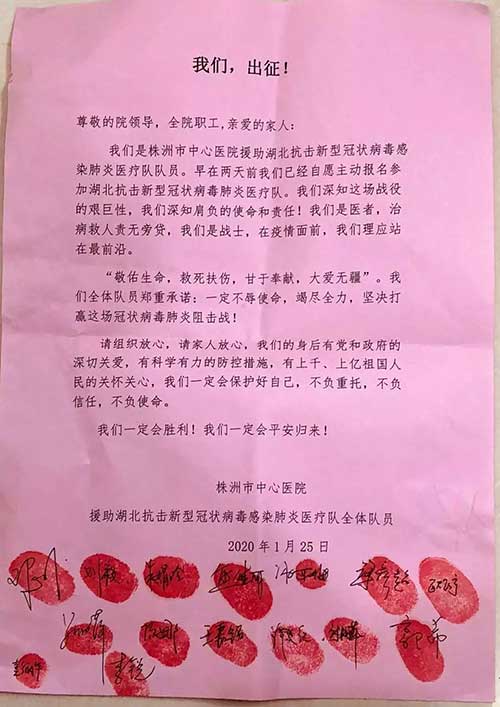 我们，出征！
尊敬的院领导，全院职工,亲爱的家人：
我们是株洲市中心医院援助湖北抗击新型冠状病毒感
染肺炎医疗队队员。早在两天前我们已经自愿主动报名参
加湖北抗击新型冠状病毒肺炎医疗队。我们深知这场战役
的艰巨性，我们深知肩负的使命和责任！我们是医者，治
病救人责无旁贷，我们是战士，在疫情面前，我们理应站
在最前沿。
“敬佑生命，救死扶伤，甘于奉献，大爱无疆”。我
们全体队员郑重承诺：一定不辱使命，竭尽全力，坚决打
赢这场冠状病毒肺炎阻击战！
请组织放心，请家人放心，我们的身后有党和政府的
深切关爱，有科学有力的防控措施，有上千、上亿祖国人
民的关怀关心，我们一定会保护好自己，不负重托，不负
信任，不负使命。
我们一定会胜利！我们一定会平安归来！
株洲市中心医院
援助湖北抗击新型冠状病毒感染肺炎医疗队全体队员
2020年1月25日
李锐